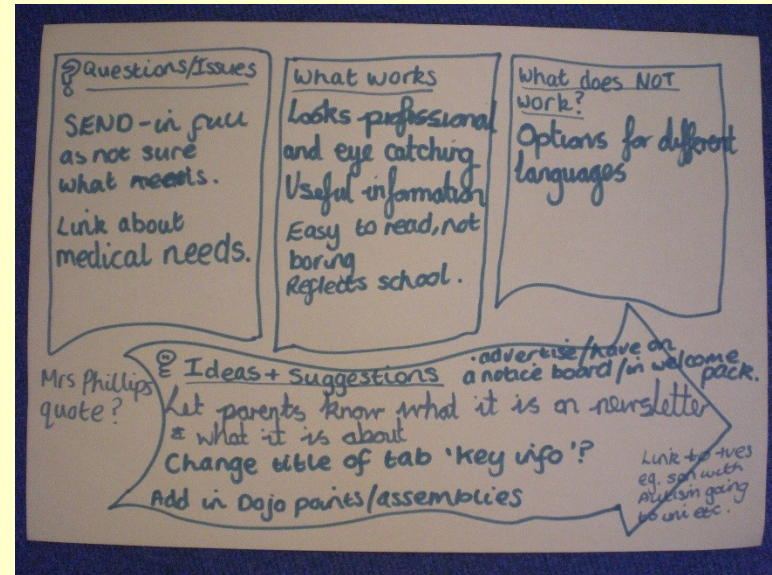 ? Questions/Issues
SEND - in full
as not sure
what means.
Link about
medical needs.
What works
Looks professional
and eye catching
Useful information
Easy to read, not
boring
Reflects school.
What does NOT
work?
Options for different
languages
Mrs Phillips
quote?
Ideas + Suggestions
· advertise/have on
a notice board/in welcome
pack.
Let parents know what it is on newsletter
& what it is about
Change title of tab 'Key info'?
Add in Dojo points/assemblies
Link to
eg. son with
Autism going
to uni etc.